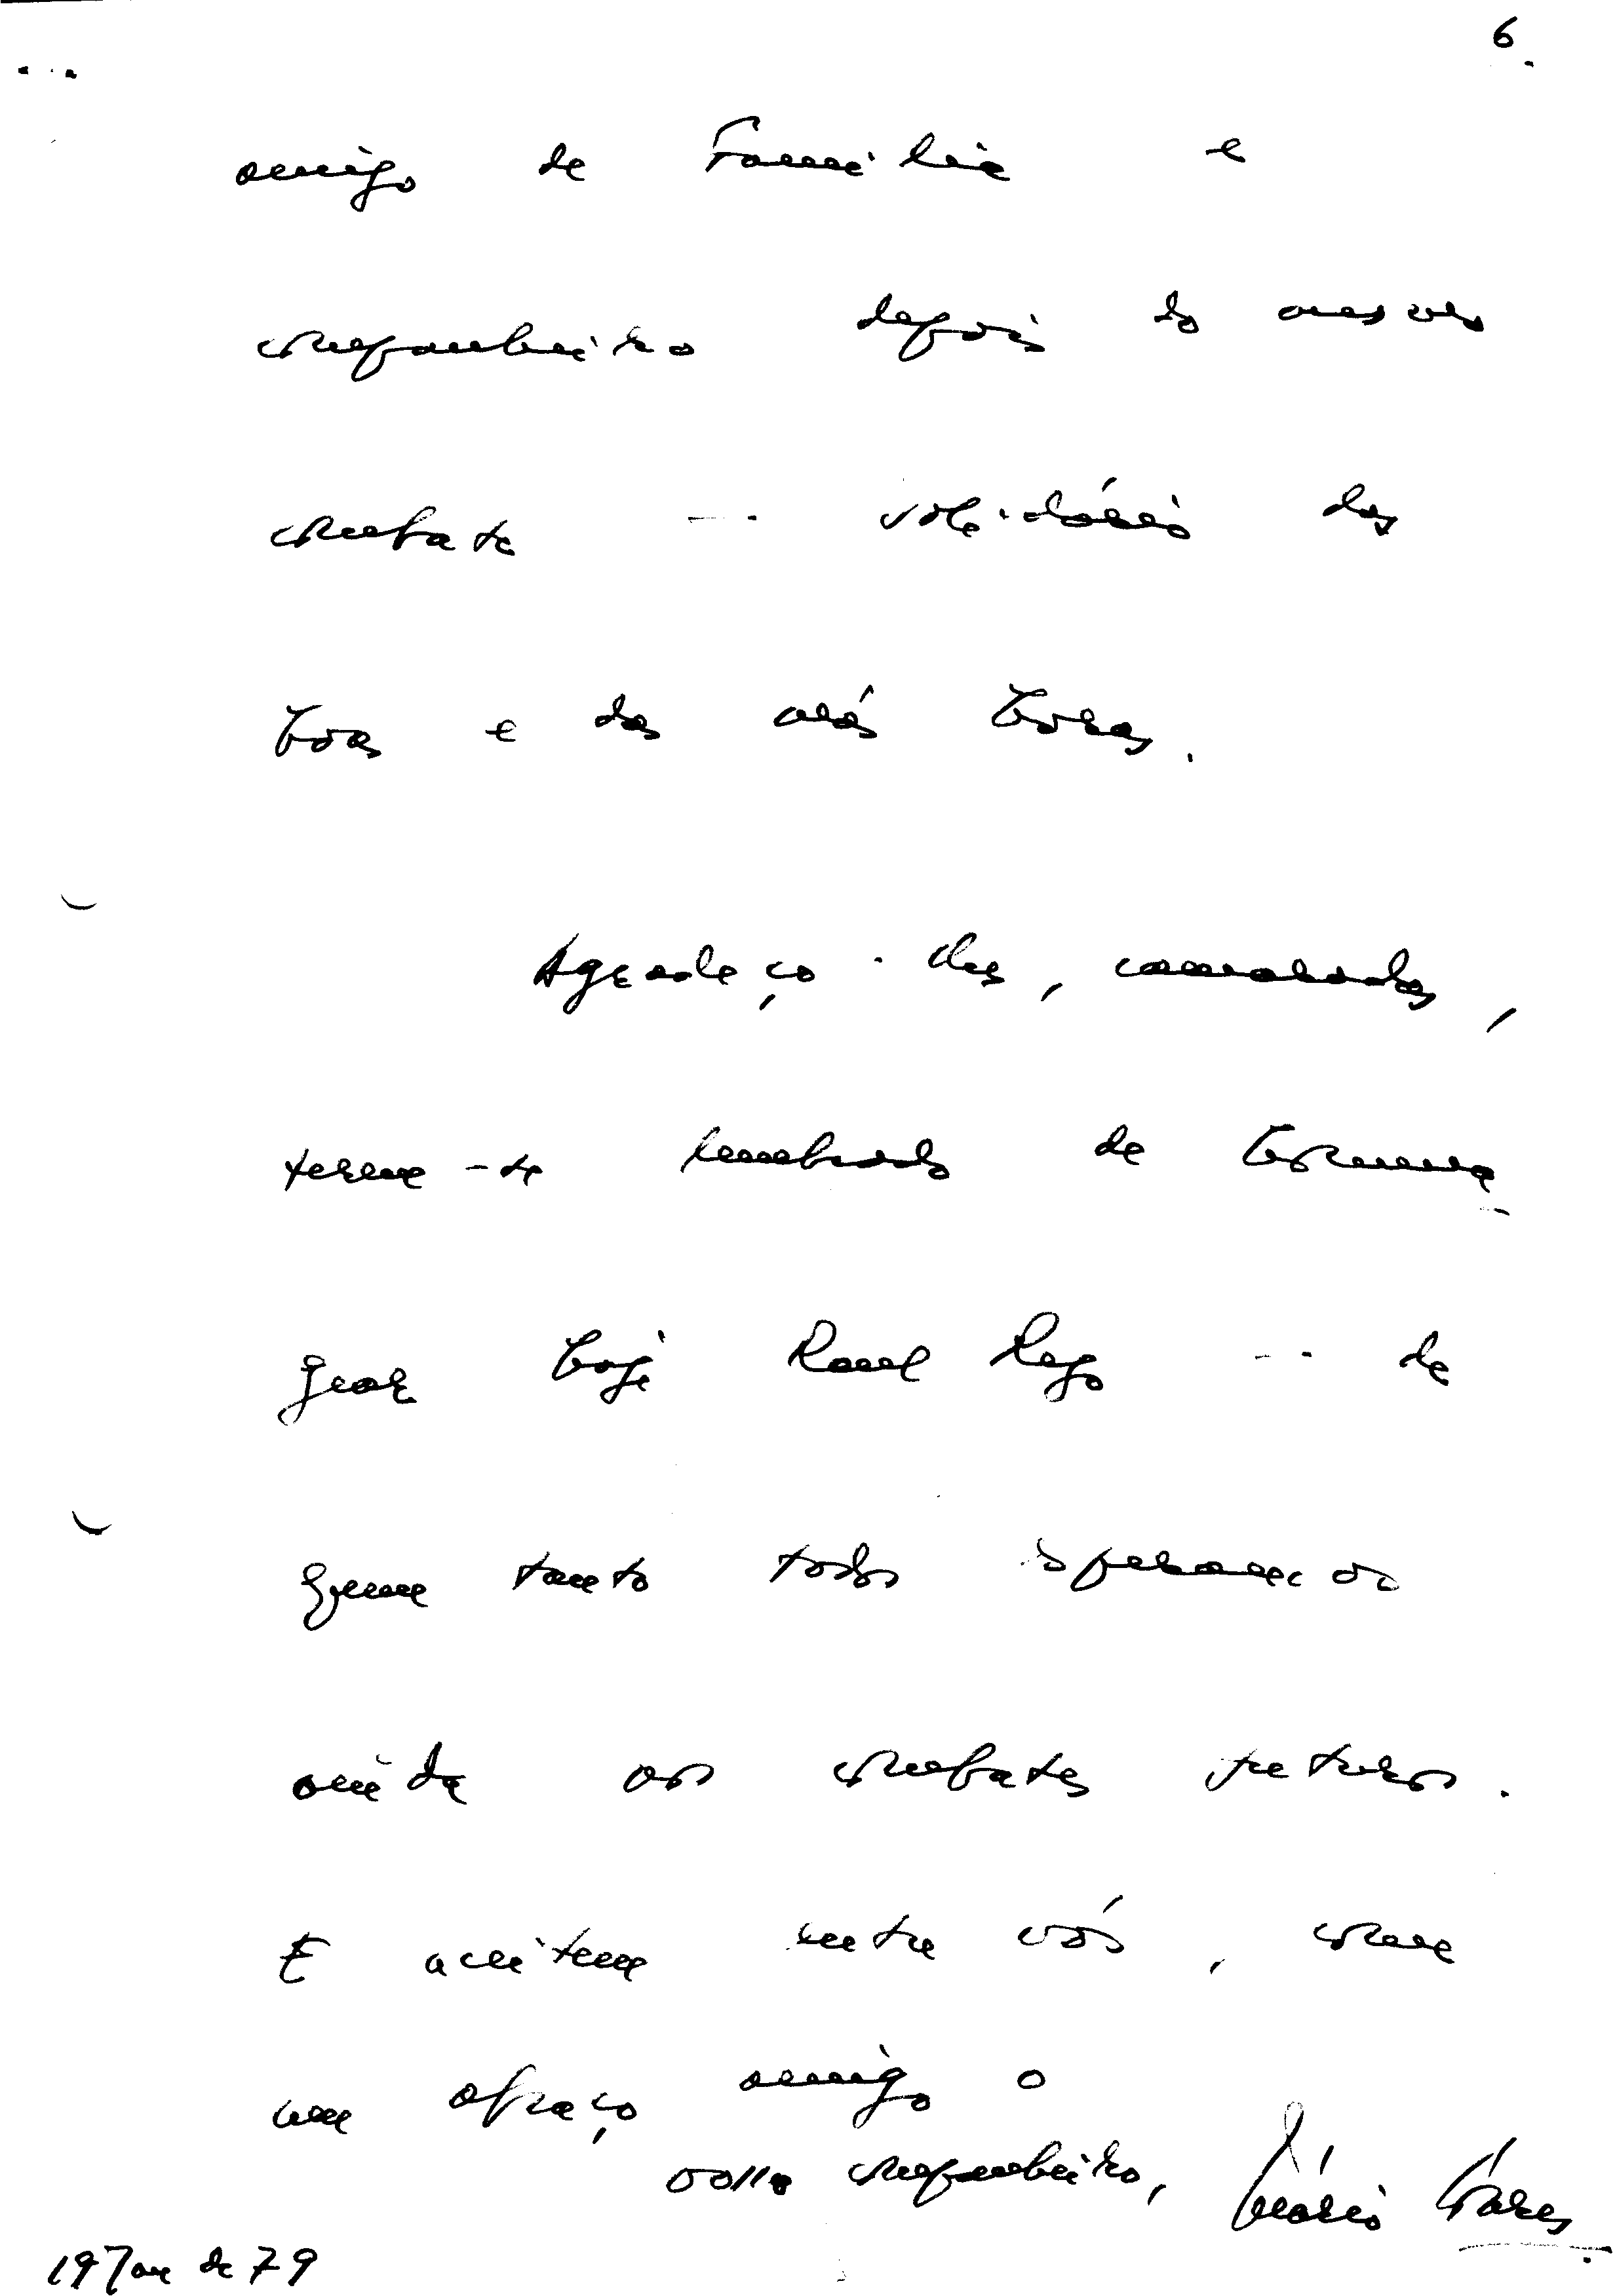 6
amigo de Família e
companheiro depois do mesmo
combate — solidário das
boas e das más horas.
Agradeço-lhes, camaradas,
terem-se lembrado de homena-
gear hoje Raul Rego — de
quem tanto todos esperamos
ainda nos combates futuros.
E aceitem entre vós, com
um abraço amigo o
vosso companheiro, Mário Soares
19 Jan de 79